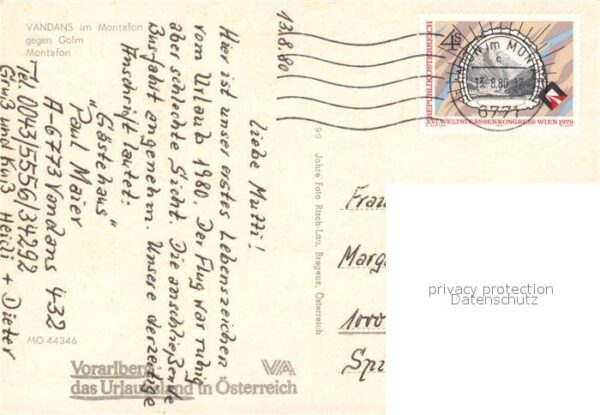 VANDANS im Montafon
gegen Golm
Montafon
13.8.80
Liebe Mutti!
Hier ist unser erstes Lebenszeichen
vom Urlaub 1980. Der Flug war ruhig
aber schlechte Sicht. Die anschließende
Busfahrt angenehm. Unsere derzeitige
Anschrift lautet:
"Gästehaus"
Paul Maier
A-6773 Vandans 432
Tel. 0043/5556/34292
Gruß und Kuß Heidi + Dieter
MO 44346
Vorarlberg
das Urlaubsland in Österreich
VA
90 Jahre Foto Risch-Lau, Bregenz, Österreich
REPUBLIK ÖSTERREICH
4 S
XVI. WELTSTRASSENKONGRESS WIEN 1979
im MON
c
13.8.80
6771
Frau
Marg
1000
Sp
privacy protection
Datenschutz